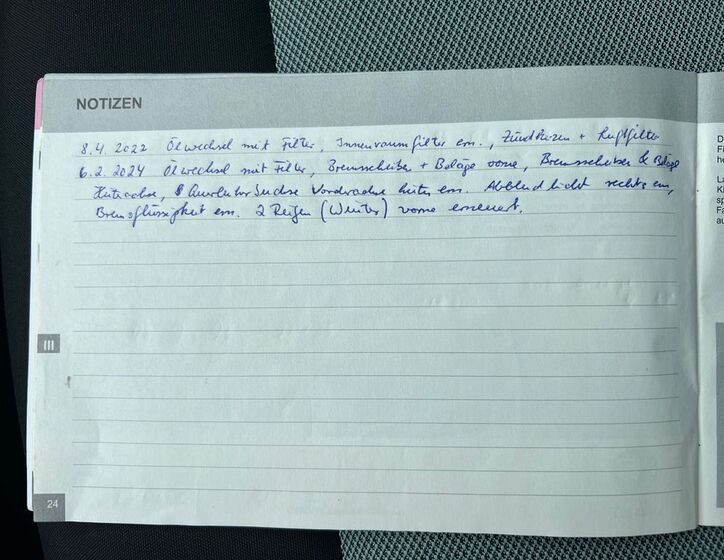 NOTIZEN
8.4.2022 Ölwechsel mit Filter, Innenraumfilter ern., Zündkerzen + Luftfilter
6.2.2024 Ölwechsel mit Filter, Bremsscheiben + Beläge vorne, Bremsscheiben & Beläge
Vorderachse hinten ern. Abblendlicht rechts ern,
Bremsflüssigkeit ern. 2 Reifen (Winter) vorne erneuert.
III
24